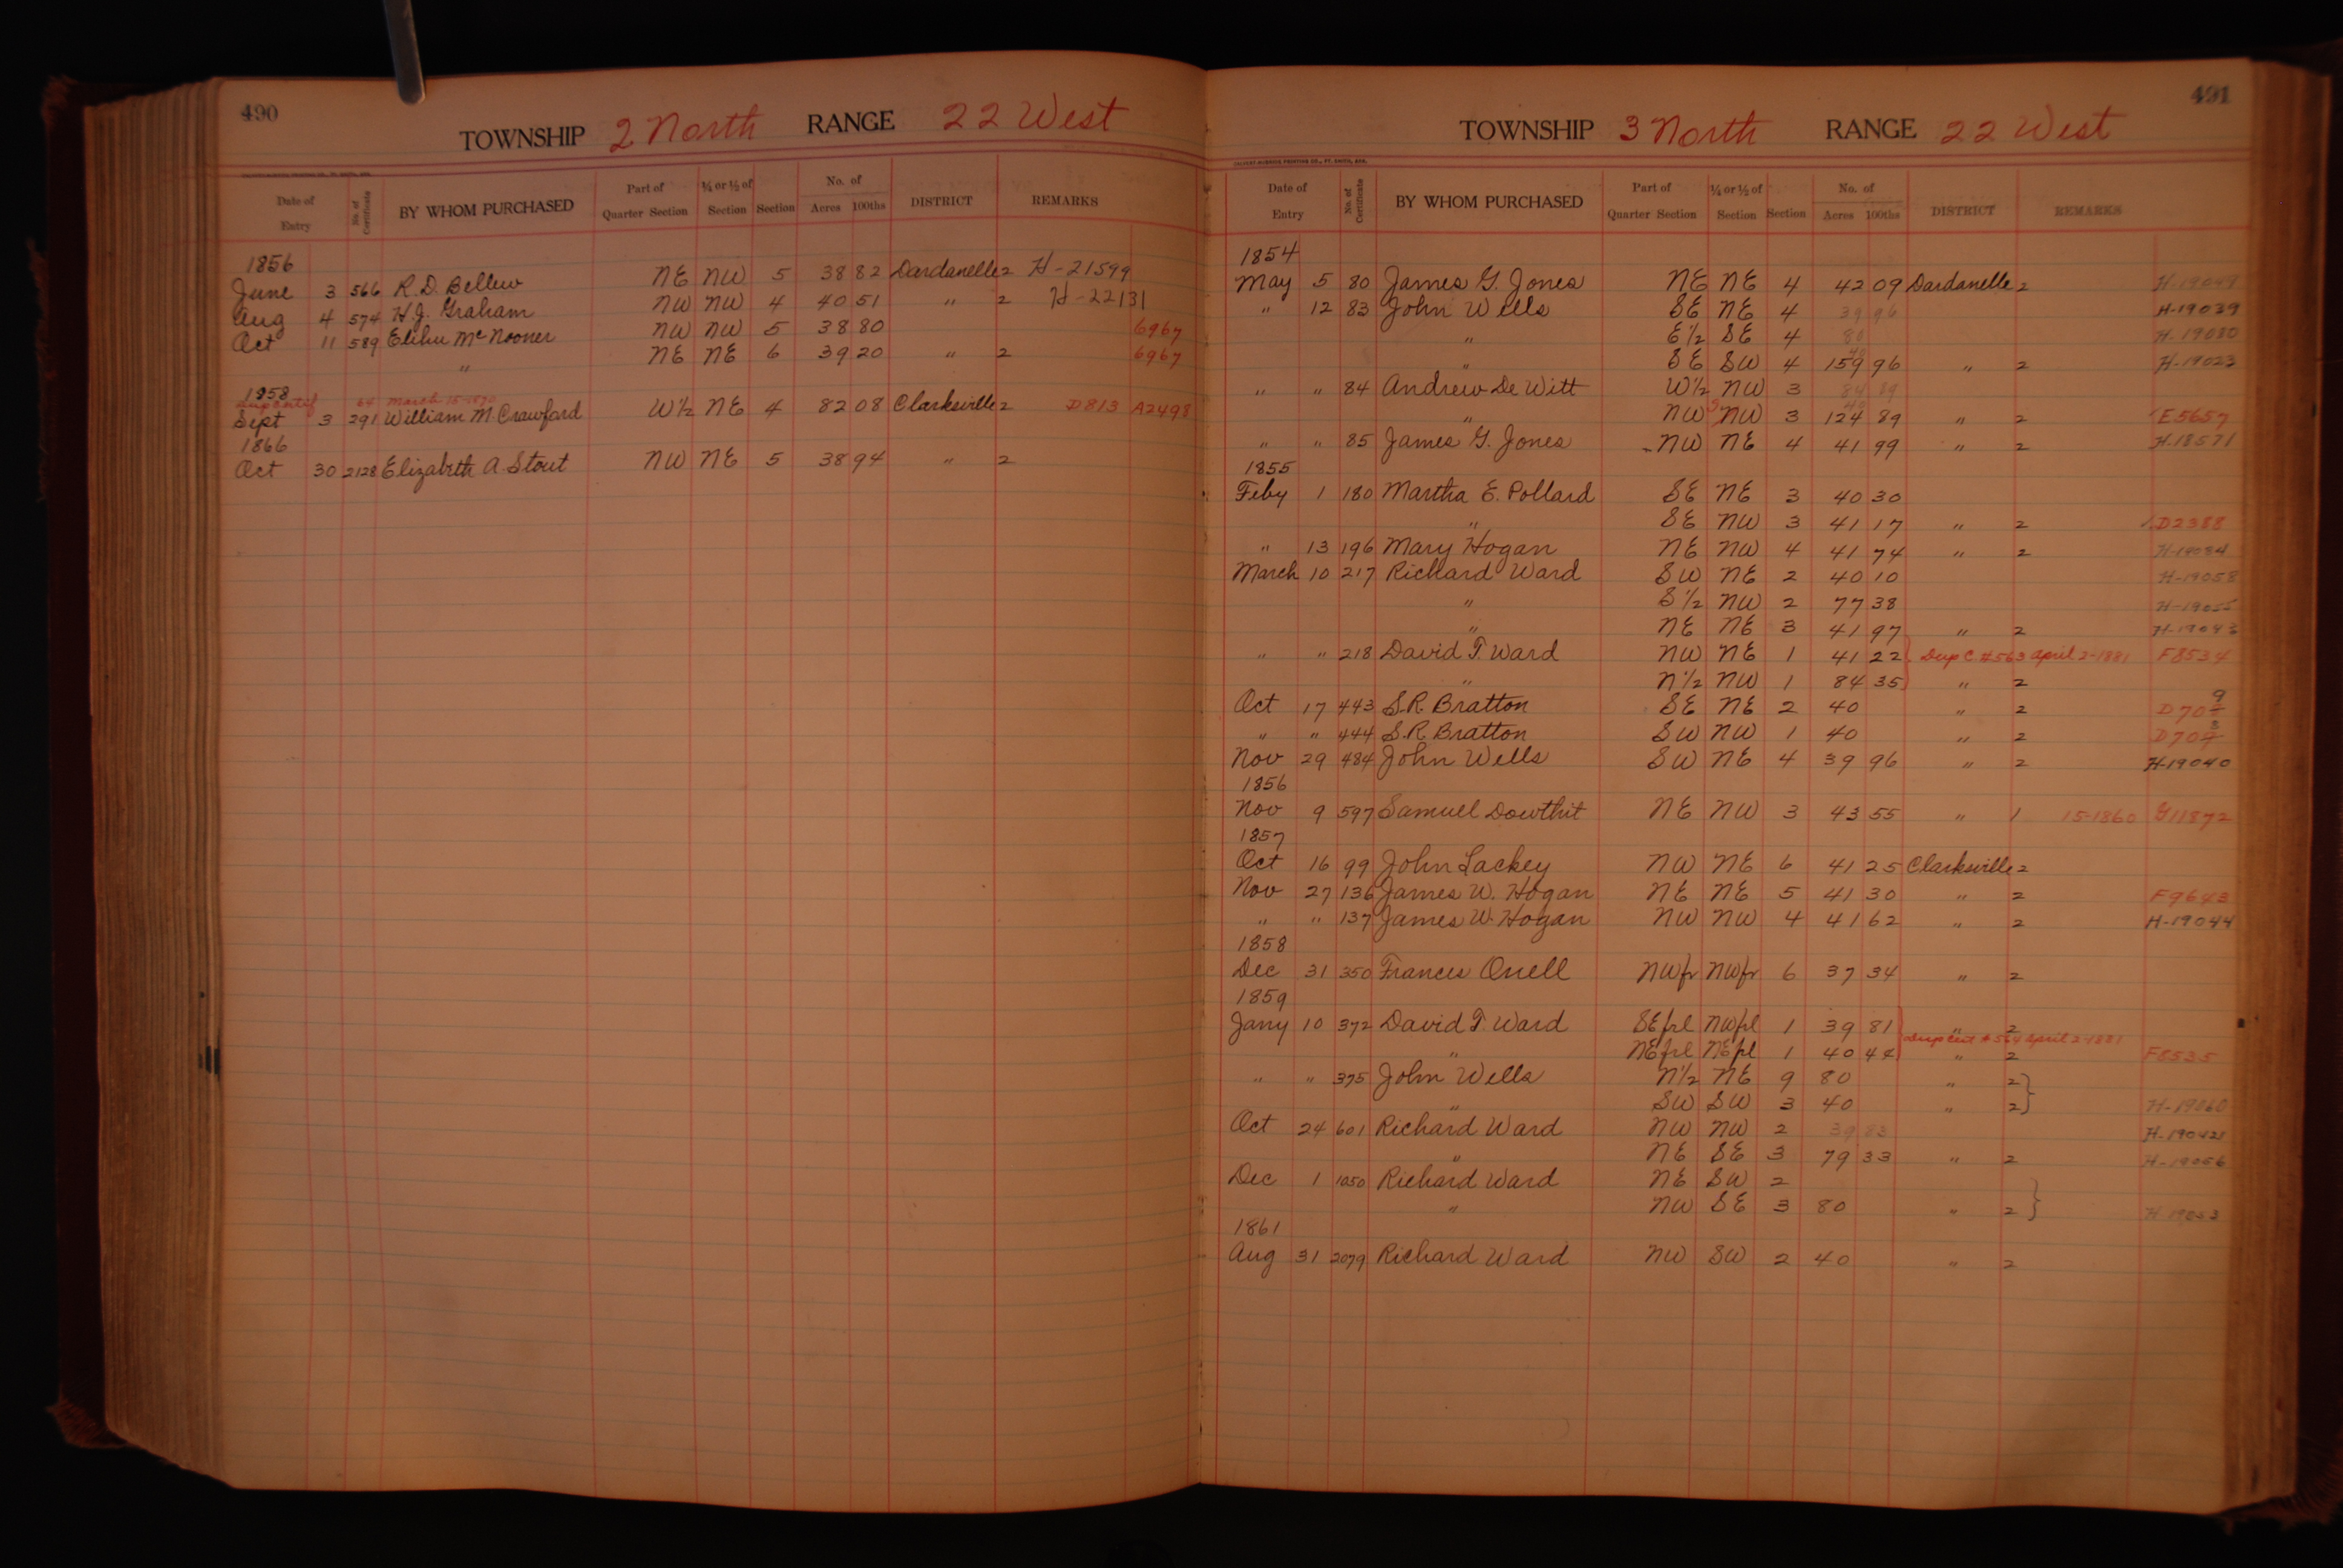 490
TOWNSHIP 2 North RANGE 22 West
Date of Entry No. of Certificate BY WHOM PURCHASED Part of Quarter Section ¼ or ½ of Section Section No. of Acres 100ths DISTRICT REMARKS
1856
June 3 566 R. D. Bellew NE NW 5 38 82 Dardanelle 2 H-21599
Aug 4 574 H. J. Graham NW NW 4 40 51 " 2 H-22131
Oct 11 589 Elihu McNooner NW NW 5 38 80 6967
" NE NE 6 39 20 " 2 6967
1858
64 March 15-1870
Sept 3 291 William M. Crawford W½ NE 4 82 08 Clarksville 2 D813 A2498
1866
Oct 30 2128 Elizabeth A Stout NW NE 5 38 94 " 2
491
TOWNSHIP 3 North RANGE 22 West
CALVERT-McBRIDE PRINTING CO., FT. SMITH, ARK.
Date of Entry No. of Certificate BY WHOM PURCHASED Part of Quarter Section ¼ or ½ of Section Section No. of Acres 100ths DISTRICT REMARKS
1854
May 5 80 James G. Jones NE NE 4 42 09 Dardanelle 2
" 12 83 John Wells SE NE 4 39 96 H-19039
" E½ SE 4 80 H-19080
" SE SW 4 40 159 96 " 2 H-19023
" " 84 Andrew De Witt W½ NW 3 84 89
" NW S NW 3 40 124 89 " 2 E5657
" " 85 James G. Jones NW NE 4 41 99 " 2 H-18571
1855
Feby 1 180 Martha E. Pollard SE NE 3 40 30
" SE NW 3 41 17 " 2 D2388
" 13 196 Mary Hogan NE NW 4 41 74 " 2 H-19084
March 10 217 Richard Ward SW NE 2 40 10 H-19058
" S½ NW 2 77 38 H-19055
" NE NE 3 41 97 " 2 H-19043
" " 218 David T. Ward NW NE 1 41 22 Dup C #563 April 2-1881 F8534
" N½ NW 1 84 35 " 2
Oct 17 443 S. R. Bratton SE NE 2 40 " 2 D707 9
" " 444 S. R. Bratton SW NW 1 40 " 2 D707 8
Nov 29 484 John Wells SW NE 4 39 96 " 2 H-19040
1856
Nov 9 597 Samuel Dowthit NE NW 3 43 55 " 1 15-1860 G11872
1857
Oct 16 99 John Lackey NW NE 6 41 25 Clarksville 2
Nov 27 136 James W. Hogan NE NE 5 41 30 " 2 F9643
" " 137 James W. Hogan NW NW 4 41 62 " 2 H-19044
1858
Dec 31 350 Frances Onell NWfr NWfr 6 37 34 " 2
1859
Jany 10 372 David T. Ward SEfrl NWfrl 1 39 81 " 2
Dup Cert #564 April 2-1881
" NEfrl NEfrl 1 40 44 " 2 F8535
" " 375 John Wells N½ NE 9 80 " 2
" SW SW 3 40 " 2 H-19060
Oct 24 601 Richard Ward NW NW 2 39 83
" NE SE 3 79 33 " 2 H-19056
Dec 1 1050 Richard Ward NE SW 2
" NW SE 3 80 " 2 H-19053
1861
Aug 31 2079 Richard Ward NW SW 2 40 " 2